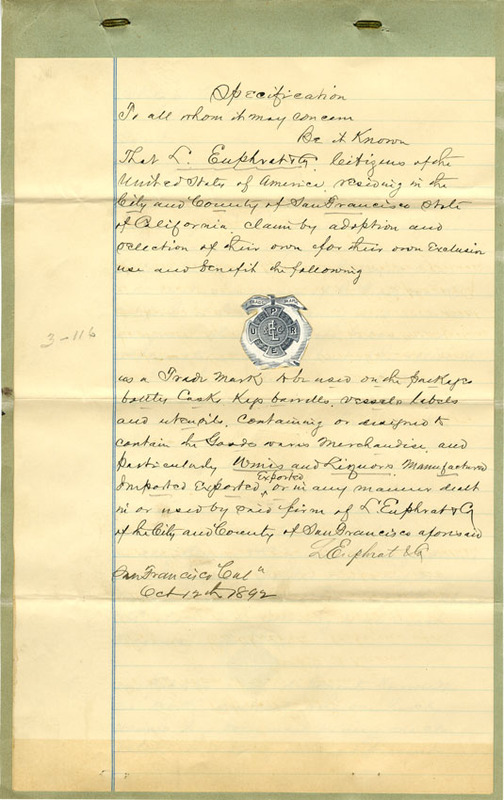 Specification
To all whom it may concern
Be it Known
That L. Euphrat & Co. Citizens of the
United States of America, residing in the
City and County of San Francisco State
of California. claim by adoption and
selection of their own for their own Exclusive
use and benefit the following
TRADE MARK
PURE
3-116
as a Trade Mark to be used on the packages
bottles Cask Kegs barrells. vessels labels
and utensils. Containing or designed to
contain the Goods wares Merchandise and
particularly Wines and Liquors Manufactured
Exported
Imported Exported, or in any manner dealt
in or used by said firm of L Euphrat & Co
of the City and County of San Francisco aforesaid
L Euphrat & Co
San Francisco "Cal"
Oct 12th 1892